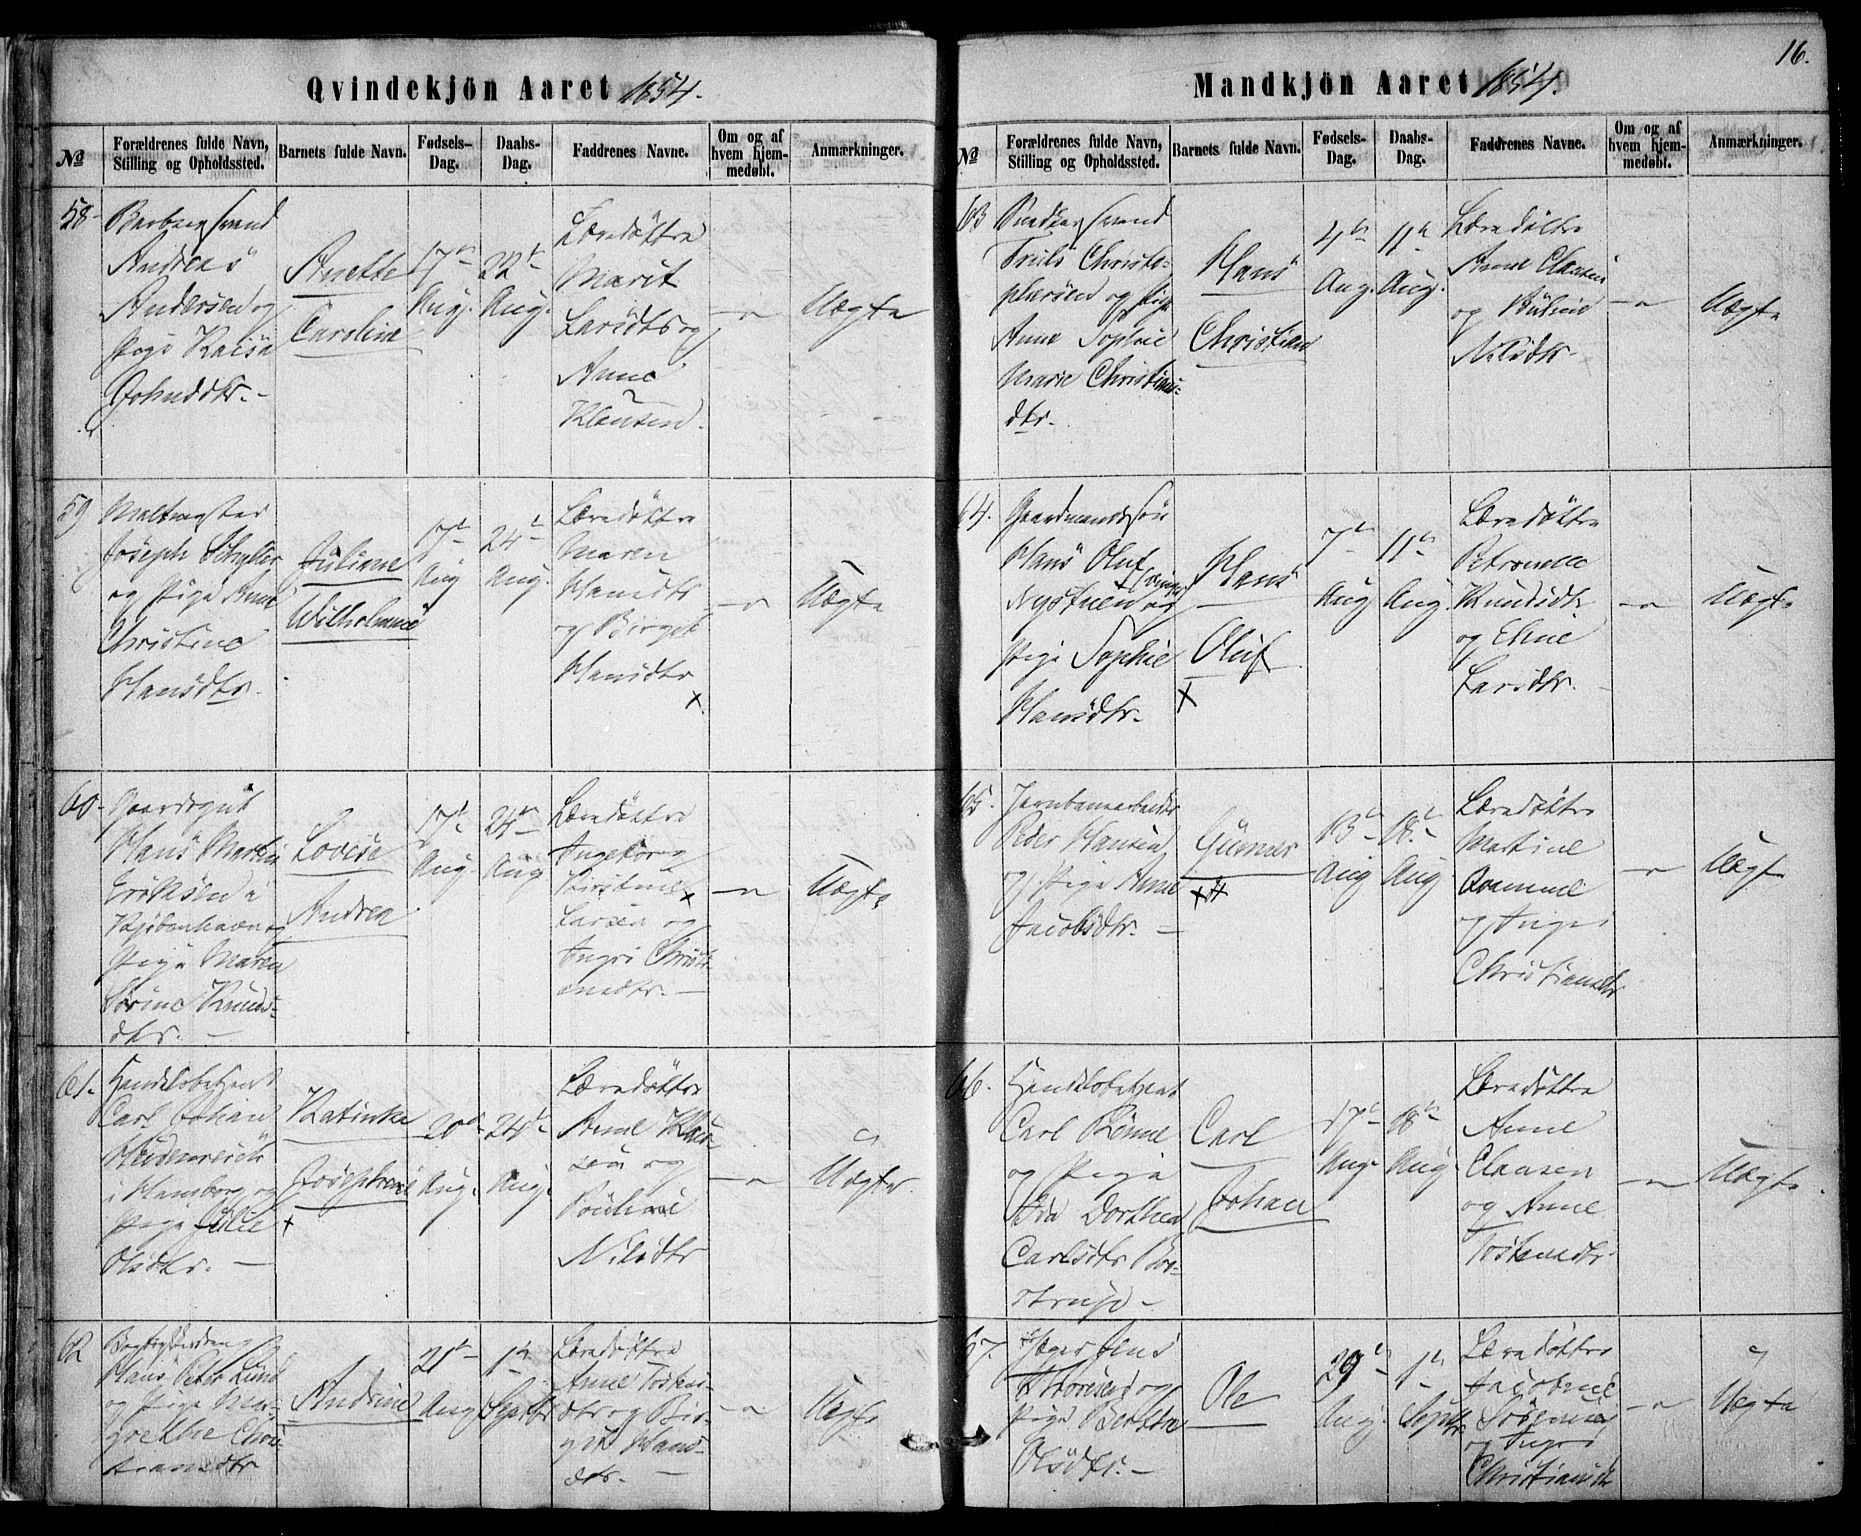 16.
Qvindekjön Aaret 1854.
No
Forældrenes fulde Navn,
Stilling og Opholdssted.
Barnets fulde Navn.
Fødsels-
Dag.
Daabs-
Dag.
Faddrenes Navne.
Om og af
hvem hjem-
medøbt.
Anmærkninger.
58
Andreas
Andersen og
Pige Kaisa
Johnsdtr.
Anette
Caroline
17de
Aug.
22de
Aug.
Læredøttre
Marit
Larsdtr og
Anne
Klausen.
Uægte
59
Joseph
og Pige Anne
Christine
Hansdtr.
Juliane
Wilhelmine
17de
Aug
24de
Aug.
Læredøttre
Maren
Hansdtr
og Birget
Hansdtr
x
Uægte
60
Gaardsgut
Hans Martin
Eriksen i
Kjøbenhavn og
Pige Maren
Sørine Knuds-
dtr.
Lovise
Andrea
17de
Aug.
24de
Aug
Læredøttre
Ingeborg
Kirstine x
Larsen og
Ingri Christi-
ansdtr.
Uægte
61.
Handelsbetjent
Carl Johan
Heidenreich
i Hamborg og
Pige Julie
Olsdtr.
Katinka
Josephine
x
20de
Aug.
24de
Aug.
Læredøttre
Anne Klau-
sen og
Pouline
Nilsdtr
Uægte
62
Hans Peter Lund
og Pige Mar-
grethe Chri-
stiansdtr
Andrine
21de
Aug
1ste
Septbr
Læredøttre
Anne Tosten-
dtr og Bir-
git Hans-
dtr.
Uægte
Mandkjön Aaret 1854.
No
Forældrenes fulde Navn,
Stilling og Opholdssted.
Barnets fulde Navn.
Fødsels-
Dag.
Daabs-
Dag.
Faddrenes Navne.
Om og af
hvem hjem-
medøbt.
Anmærkninger.
63
Snedkersvend
Truls Christo-
phersen og Pige
Anne Sophie
Marie Christians-
dtr.
Hans
Christian
4de
Aug.
11te
Aug.
Læredøttre
Anne Clausen
og
Nilsdtr.
Uægte
64.
Gaardmandssøn
Hans Oluf
og
Pige Sophie
Hansdtr.
Hans
Oluf
x
7de
Aug
11te
Aug
Læredøttre
Petronelle
Knudsdtr
og Eline
Larsdtr.
Uægte
65.
Jernbanearbeider
Peder Hansen
og Pige Anne
Jacobsdtr.
Gunnar
13de
Aug
18de
Aug
Læredøttre
Martine
og Inger
Christiansdtr
Uægte
66.
Handelsbetjent
Carl Rønne
og Pige
Ida Dorthea
Carlsdtr Bor-
strup
Carl
Johan
17de
Aug.
18de
Aug.
Læredøttre
Anne
Clausen
og Anne
Tostensdtr.
Uægte
67.
Jæger Jens
Thoresen og
Pige Berthe
Olsdtr.
Ole
29de
Aug.
1ste
Septbr
Læredøttre
Jacobine
og Ingri
Christiansdtr
Uægte